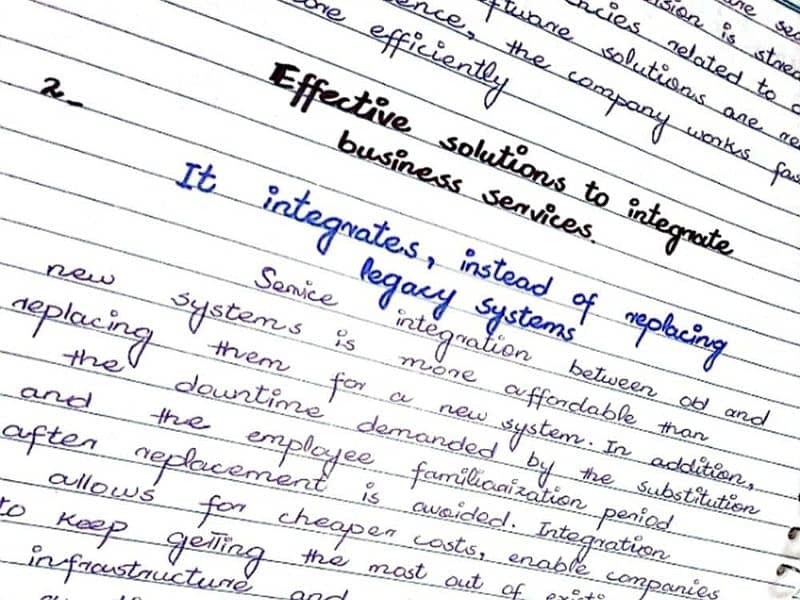 is stored
related to
solutions are
the company works
efficiently
2_ Effective solutions to integrate
business services.
It integrates, instead of replacing
legacy systems
Service integration between old and
new systems is more affordable than
replacing them for a new system. In addition,
the downtime demanded by the substitution
and the employee familiarization period
after replacement is avoided. Integration
allows for cheaper costs, enable companies
to keep getting the most out of
infrastructure and